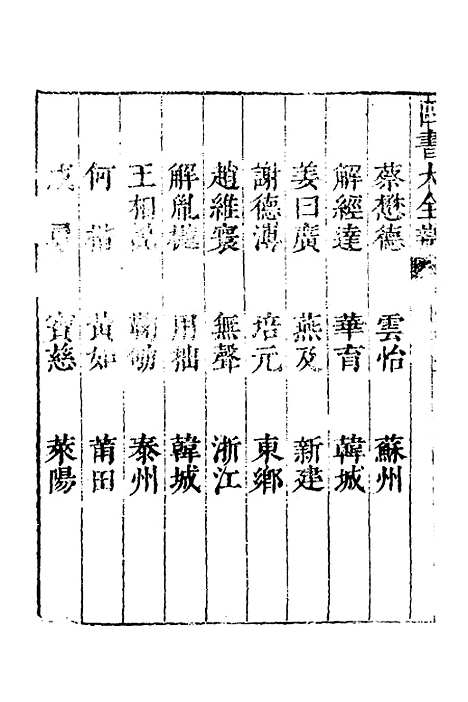 書大全
蔡懋德 雲怡 蘇州
解經達 華育 韓城
姜曰廣 燕及 新建
謝德溥 培元 東鄉
趙維寰 無聲 浙江
解胤樾 用拙 韓城
王相說 泰州
何 黃如 莆田
寶慈 萊陽